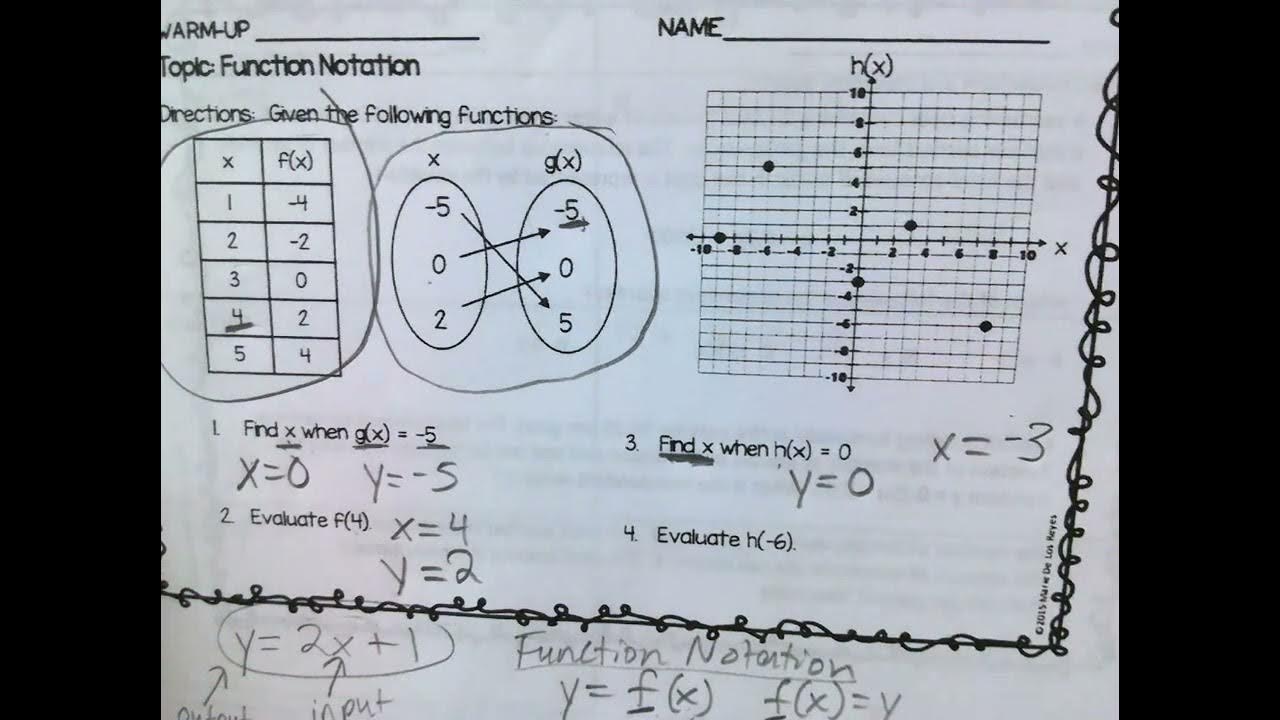 WARM-UP
NAME
Topic: Function Notation
h(x)
Directions: Given the following functions:
x f(x)
1 -4
2 -2
3 0
4 2
5 4
x g(x)
-5 -5
0 0
2 5
10
8
6
4
2
-10 -8 -6 -4 -2 2 4 6 8 10 x
-2
-4
-6
-8
-10
1. Find x when g(x) = -5
x=0 y=-5
2. Evaluate f(4). x=4
y=2
3. Find x when h(x) = 0 x=-3
y=0
4. Evaluate h(-6).
©2015 Marie De Los Reyes
y=2x+1
output input
Function Notation
y=f(x) f(x)=y